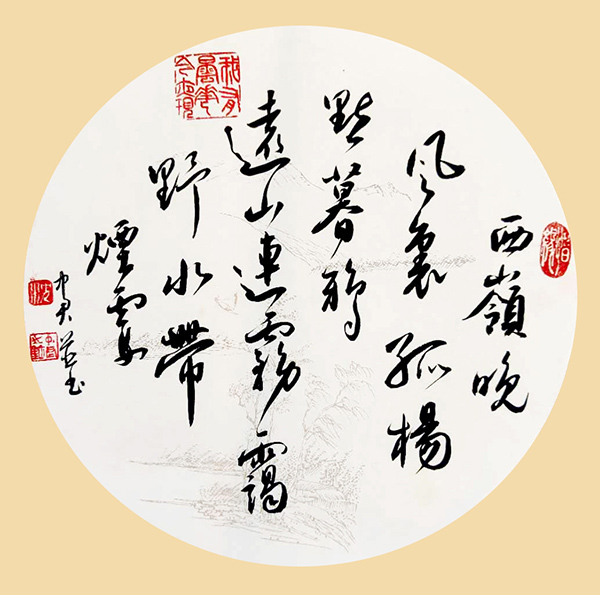 西嶺晚
風裏孤楊
點暮鴉
遠山連霧靄
野水帶
煙霞